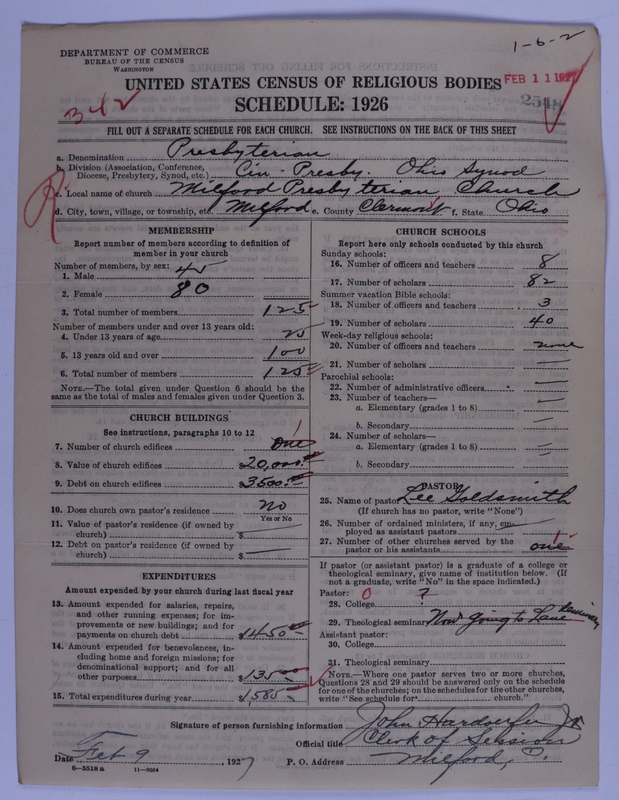 1-6-2
DEPARTMENT OF COMMERCE
BUREAU OF THE CENSUS
WASHINGTON
UNITED STATES CENSUS OF RELIGIOUS BODIES
FEB 11 1927
SCHEDULE: 1926
342
FILL OUT A SEPARATE SCHEDULE FOR EACH CHURCH. SEE INSTRUCTIONS ON THE BACK OF THIS SHEET
a. Denomination Presbyterian
b. Division (Association, Conference, Diocese, Presbytery, Synod, etc.) Cin. Presby. Ohio Synod
R.
c. Local name of church Milford Presbyterian Church
d. City, town, village, or township, etc. Milford e. County Clermont f. State Ohio
MEMBERSHIP
Report number of members according to definition of
member in your church
Number of members, by sex:
1. Male 45
2. Female 80
3. Total number of members 125
Number of members under and over 13 years old:
4. Under 13 years of age 25
5. 13 years old and over 100
6. Total number of members 125
NOTE.—The total given under Question 6 should be
same as the total of males and females given under Question 3.
CHURCH BUILDINGS
See instructions, paragraphs 10 to 12
7. Number of church edifices one
8. Value of church edifices $20,000.00
9. Debt on church edifices $3500.00
10. Does church own pastor's residence no
Yes or No
11. Value of pastor's residence (if owned by
church) $ —
12. Debt on pastor's residence (if owned by
church) $ —
EXPENDITURES
Amount expended by your church during last fiscal year
13. Amount expended for salaries, repairs,
and other running expenses; for im-
provements or new buildings; and for
payments on church debt $1450
14. Amount expended for benevolences, in-
cluding home and foreign missions; for
denominational support; and for all
other purposes $135
15. Total expenditures during year $1,585
CHURCH SCHOOLS
Report here only schools conducted by this church
Sunday schools:
16. Number of officers and teachers 8
17. Number of scholars 82
Summer vacation Bible schools:
18. Number of officers and teachers 3
19. Number of scholars 40
Week-day religious schools:
20. Number of officers and teachers none
21. Number of scholars —
Parochial schools:
22. Number of administrative officers —
23. Number of teachers—
a. Elementary (grades 1 to 8) —
b. Secondary —
24. Number of scholars—
a. Elementary (grades 1 to 8) —
b. Secondary —
PASTOR
25. Name of pastor Lee Goldsmith
(If church has no pastor, write "None")
26. Number of ordained ministers, if any, em-
ployed as assistant pastors —
27. Number of other churches served by the
pastor or his assistants one
If pastor (or assistant pastor) is a graduate of a college or
theological seminary, give name of institution below. (If
not a graduate, write "No" in the space indicated.)
Pastor: 0 ?
28. College
29. Theological seminary Now going to Lane Seminary
Assistant pastor:
30. College
31. Theological seminary
NOTE.—Where one pastor serves two or more churches,
Questions 28 and 29 should be answered only on the schedule
for one of the churches; on the schedules for the other churches,
write "See schedule for church."
Signature of person furnishing information John Jr.
Official title Clerk of Session
Date Feb 9, 1927 P. O. Address Milford, O.
6-5518 a 11-9064